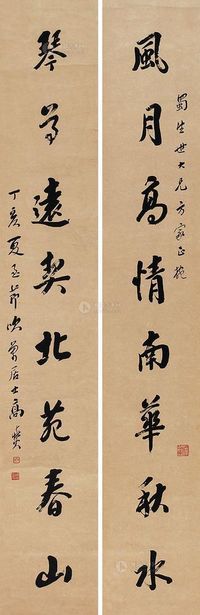 蜀生世大兄方家正
風月高情南華秋水
琴尊遠契北苑春山
丁亥夏至節吹萬居士高燮